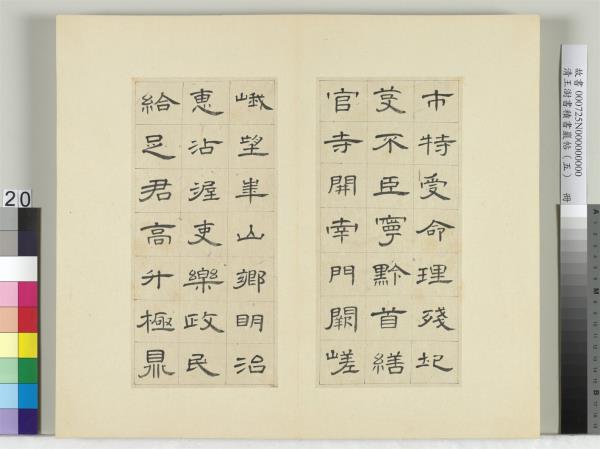 故書 000725N000000000
清王澍書積書巖帖(五) 冊
市特受命理殘圮
芟不臣寧黔首繕
官寺開南門闕嵯
峨望華山鄉明治
惠沾渥吏樂政民
給足君高升極鼎
20
A
M
B